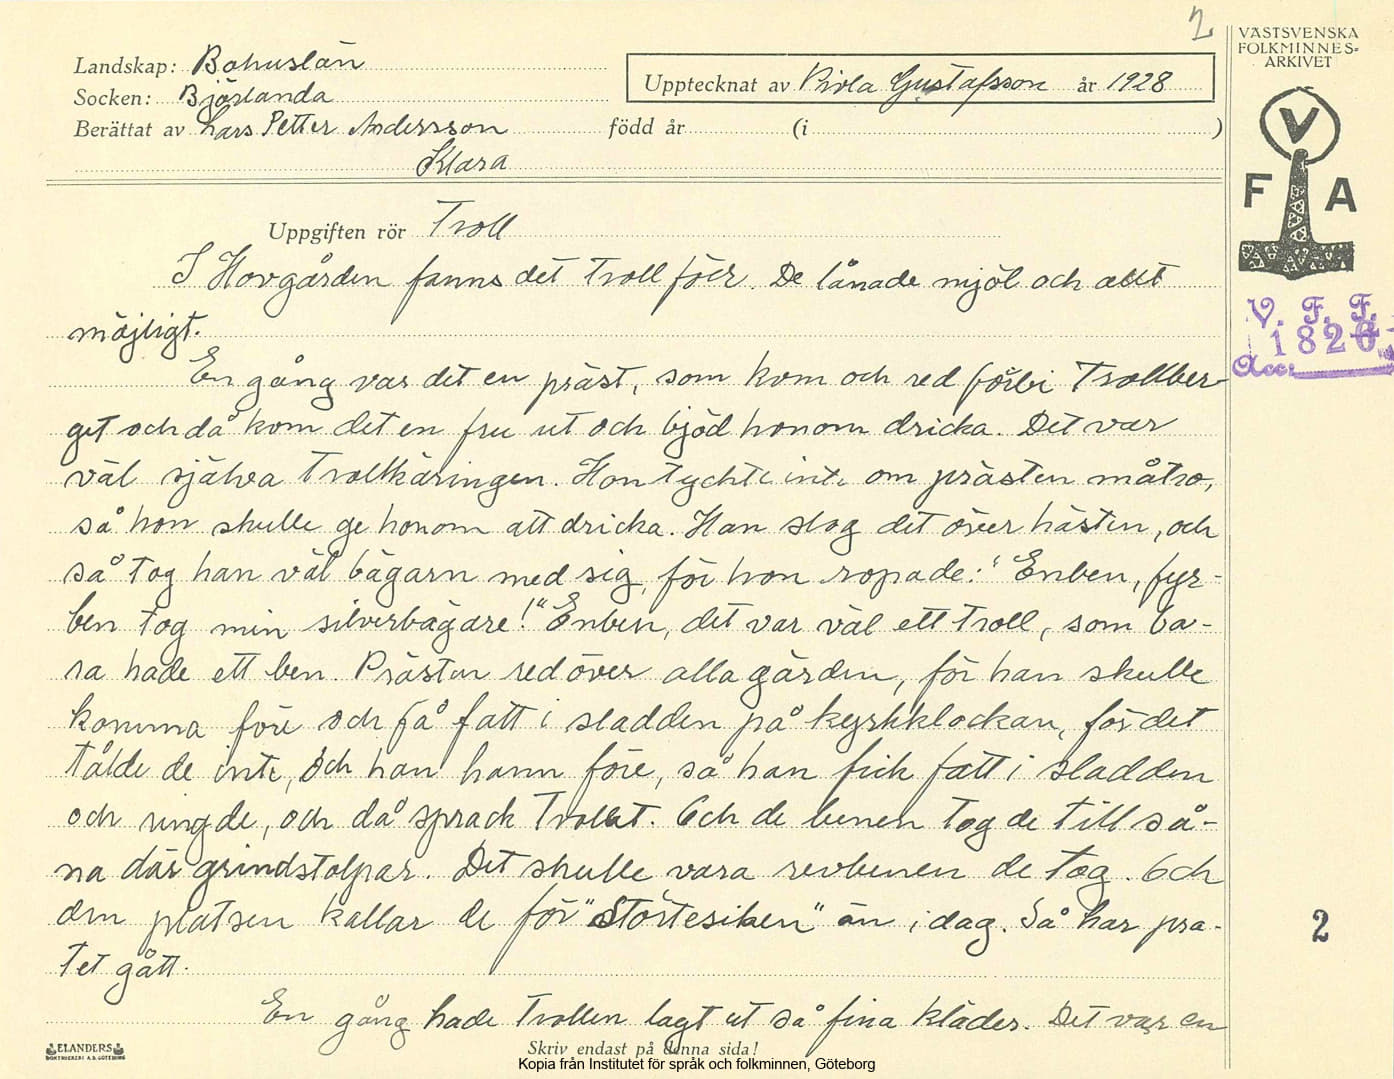 2
VÄSTSVENSKA
FOLKMINNES-
ARKIVET
Landskap: Bohuslän
Upptecknat av Viola Gustafsson år 1928
Socken: Björlanda
Berättat av Lars Petter Andersson född år (i )
Klara
V
F A
Uppgiften rör Troll
I Hovgården fanns det troll förr. De lånade mjöl och allt
möjligt.
V. F. F.
1820
Acc.
En gång var det en präst, som kom och red förbi Trollber-
get och då kom det en fru ut och bjöd honom dricka. Det var
väl själva trollkäringen. Hon tyckte inte om prästen måtro,
så hon skulle ge honom att dricka. Han slog det över hästen, och
så tog han väl bägarn med sig, för hon ropade: "Enben, fyr-
ben tog min silverbägare!" Enben, det var väl ett troll, som ba-
ra hade ett ben. Prästen red över alla gärden, för han skulle
komma före och få fatt i sladden på kyrkklockan, för det
tålde de inte, och han hann före, så han fick fatt i sladden
och ringde, och då sprack trollet. Och de benen tog de till så-
na där grindstolpar. Det skulle vara revbenen de tog. Och
den platsen kallar de för "Störtesiken" än i dag. Så har pra-
tet gått.
2
En gång hade trollen lagt ut så fina kläder. Det var en
ELANDERS
BOKTRYCKERI A.B. GÖTEBORG
Skriv endast på denna sida!
Kopia från Institutet för språk och folkminnen, Göteborg